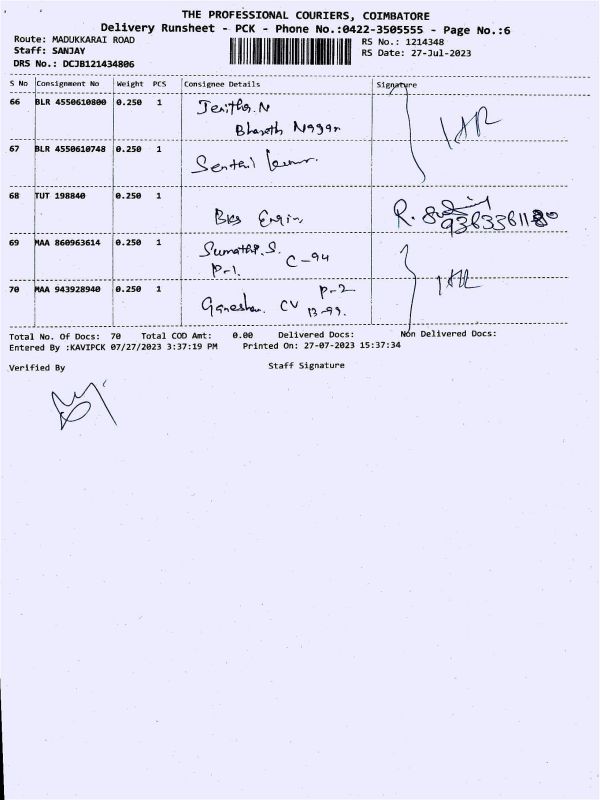 THE PROFESSIONAL COURIERS, COIMBATORE
Delivery Runsheet - PCK - Phone No.:0422-3505555 - Page No.:6
Route: MADUKKARAI ROAD
RS No.: 1214348
Staff: SANJAY
RS Date: 27-Jul-2023
DRS No.: DCJB121434806
S No Consignment No Weight PCS Consignee Details Signature
66 BLR 4550610800 0.250 1 Jenitha.N
Bharath Nagar
67 BLR 4550610748 0.250 1 Senthil kumar.
68 TUT 198840 0.250 1 Bks Engin
69 MAA 860963614 0.250 1 Sumathi.S.
P-1. C-94
70 MAA 943928940 0.250 1 P-2
Ganeshan. CV 13-99.
Total No. Of Docs: 70 Total COD Amt: 0.00 Delivered Docs: Non Delivered Docs:
Entered By :KAVIPCK 07/27/2023 3:37:19 PM Printed On: 27-07-2023 15:37:34
Verified By Staff Signature